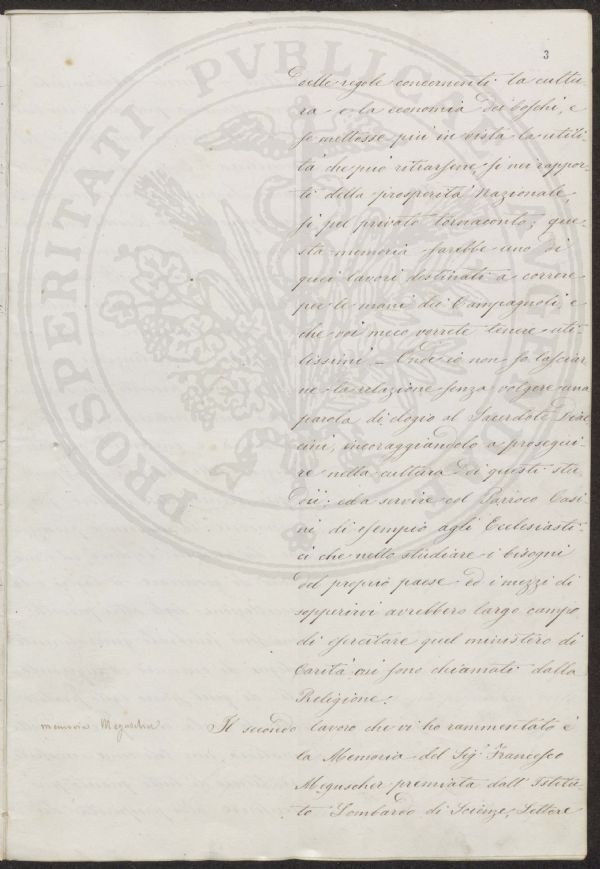 3
delle regole concernenti la cultu-
ra e la economia dei boschi, e
se mettesse più in vista la utili-
tà che può ritrarsene, si nei rappor-
ti della prosperità Nazionale,
si pel privato tornaconto; que-
sta memoria sarebbe uno di
quei lavori destinati a correre
per le mani dei Campagnoli, e
che voi meco vorrete tenere uti-
lissimi — Onde io non so lasciar-
ne la relazione senza volgere una
parola di elogio al Sacerdote
cini, incoraggiandolo a prosegui-
re nella cultura di questi stu-
dii; ed a servire col Parroco Casi-
ni di esempio agli Ecclesiasti-
ci che nello studiare i bisogni
del proprio paese ed i mezzi di
sopperirvi avrebbero largo campo
di esercitare quel ministero di
Carità cui sono chiamati dalla
Religione.
memoria Meguscher
Il secondo lavoro che vi ho rammentato è
la Memoria del Sig.r Francesco
Meguscher premiata dall'Istitu-
to Lombardo di Scienze, Lettere
PROSPERITATI PVBLICAE AVGENDAE